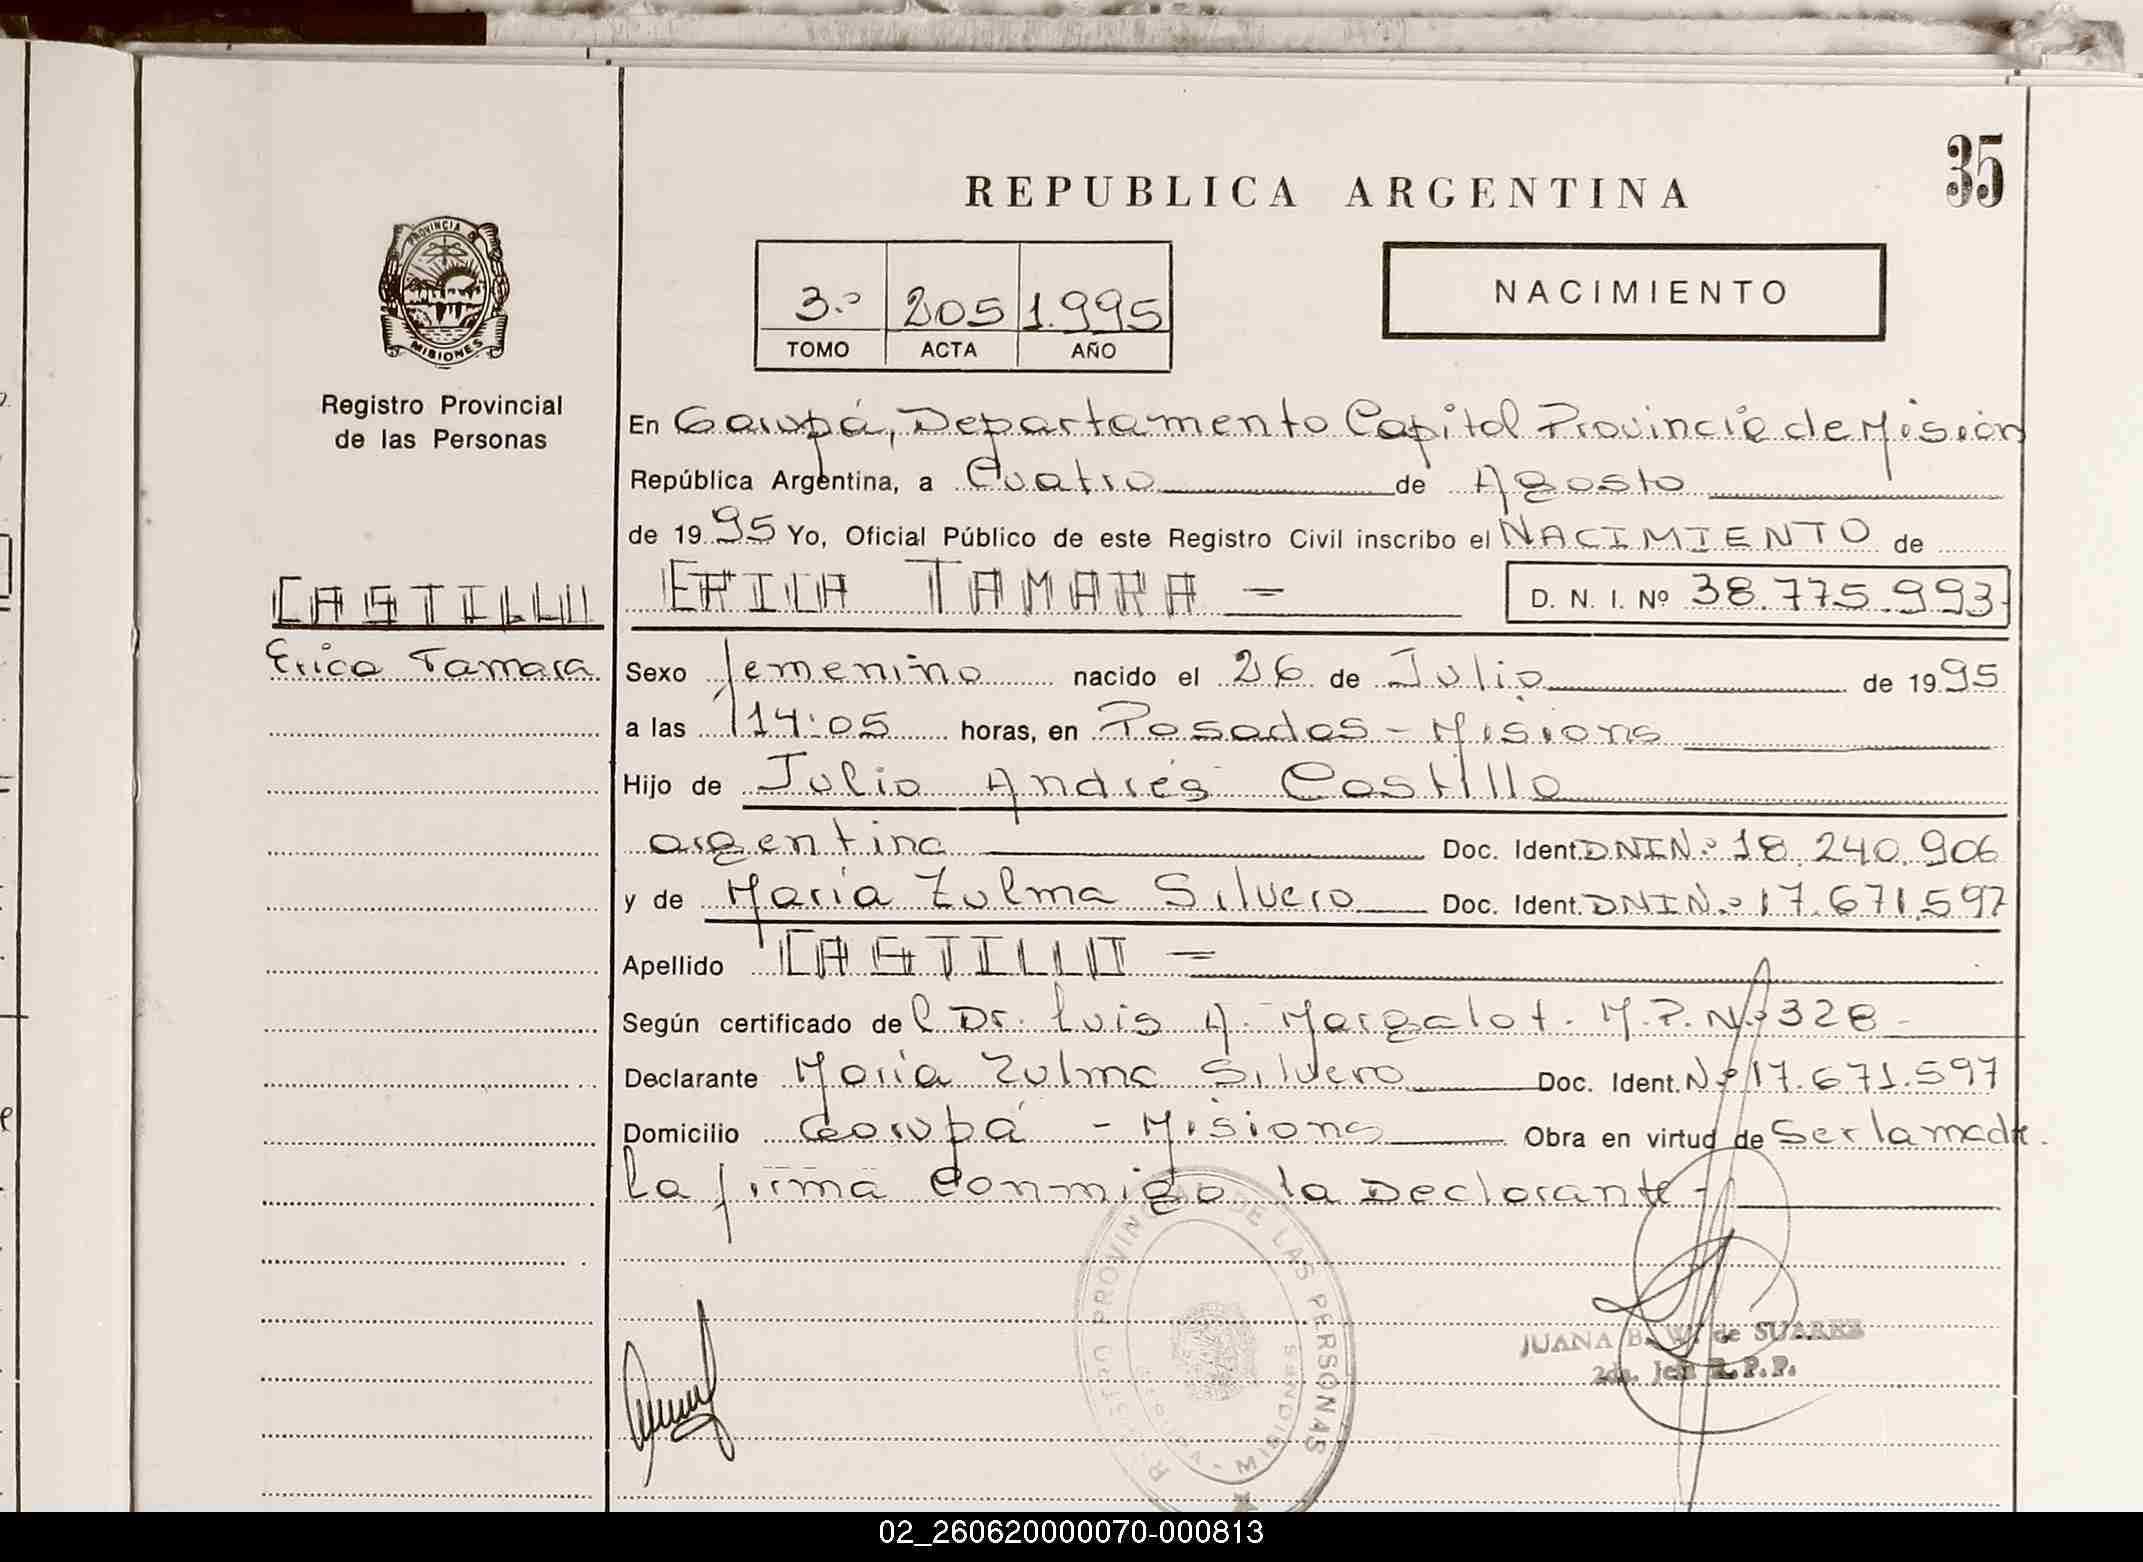 35
REPUBLICA ARGENTINA
PROVINCIA DE
MISIONES
Registro Provincial
de las Personas
3.º 205 1.995
TOMO ACTA AÑO
NACIMIENTO
En Garupá, Departamento Capital Provincia de Mision
República Argentina, a Cuatro de Agosto
de 1995 Yo, Oficial Público de este Registro Civil inscribo el NACIMIENTO de
CASTILLO
Erica Tamara
ERICA TAMARA =
D. N. I. Nº 38.775.993
Sexo femenino nacido el 26 de Julio de 1995
a las 14:05 horas, en Posadas - Misions
Hijo de Julio Andrés Castillo
argentina Doc. Ident. DNI N.º 18.240.906
y de Maria Zulma Silvero Doc. Ident. DNI N.º 17.671.597
Apellido CASTILLO =
Según certificado del Dr. Luis A. Margalot. M.P. N.º 328 -
Declarante Maria Zulma Silvero Doc. Ident. Nº 17.671.597
Domicilio Garupá - Misions Obra en virtud de Ser la madre.
la firma Conmigo la Declarante -
REGISTRO PROVINCIAL DE LAS PERSONAS
MISIONES
JUANA B. W. de SUAREZ
2da. Jefe R.P.P.
02_260620000070-000813